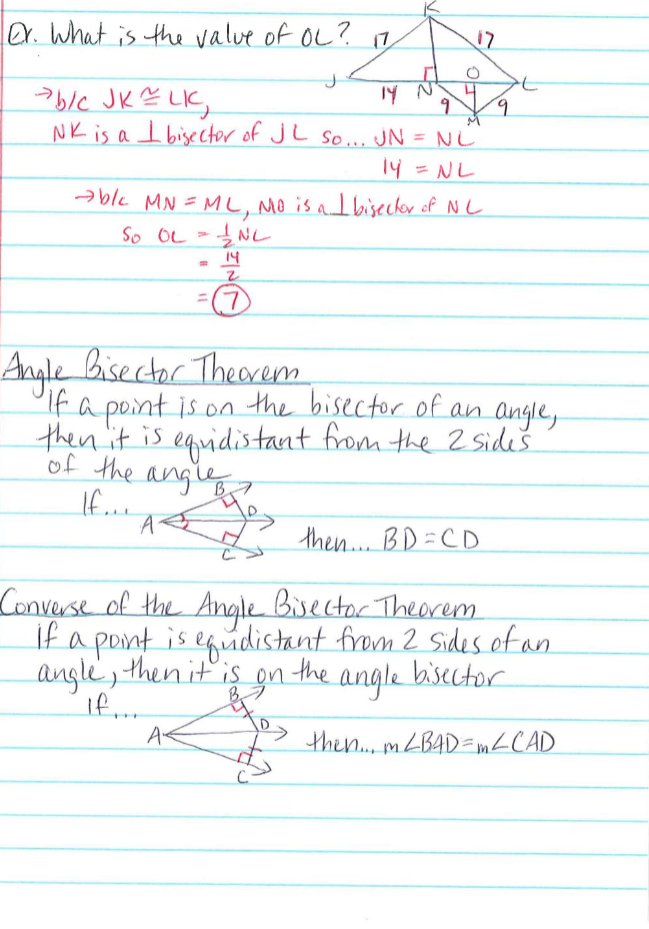 Ex. What is the value of OL?
K
17 17
J 14 N O L
9 4 9
M
→ b/c JK ≅ LK,
NK is a ⊥ bisector of JL so... JN = NL
14 = NL
→ b/c MN = ML, MO is a ⊥ bisector of NL
So OL = ½ NL
= 14/2
= 7
Angle Bisector Theorem
If a point is on the bisector of an angle,
then it is equidistant from the 2 sides
of the angle
If...
B
A D
C
then... BD = CD
Converse of the Angle Bisector Theorem
If a point is equidistant from 2 sides of an
angle, then it is on the angle bisector
If...
B
A D
C
then... m∠BAD = m∠CAD